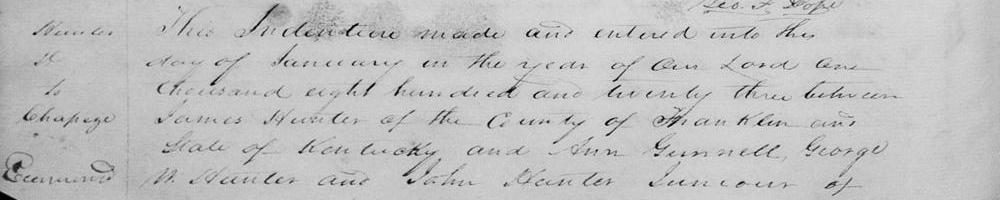 Geo. F. Pope
Hunter This Indenture made and entered into this
to day of January in the year of our Lord one
thousand eight hundred and twenty three between
James Hunter of the County of Franklin and
State of Kentucky and Ann Gunnell, George
Examined W. Hunter and John Hunter Juniour of